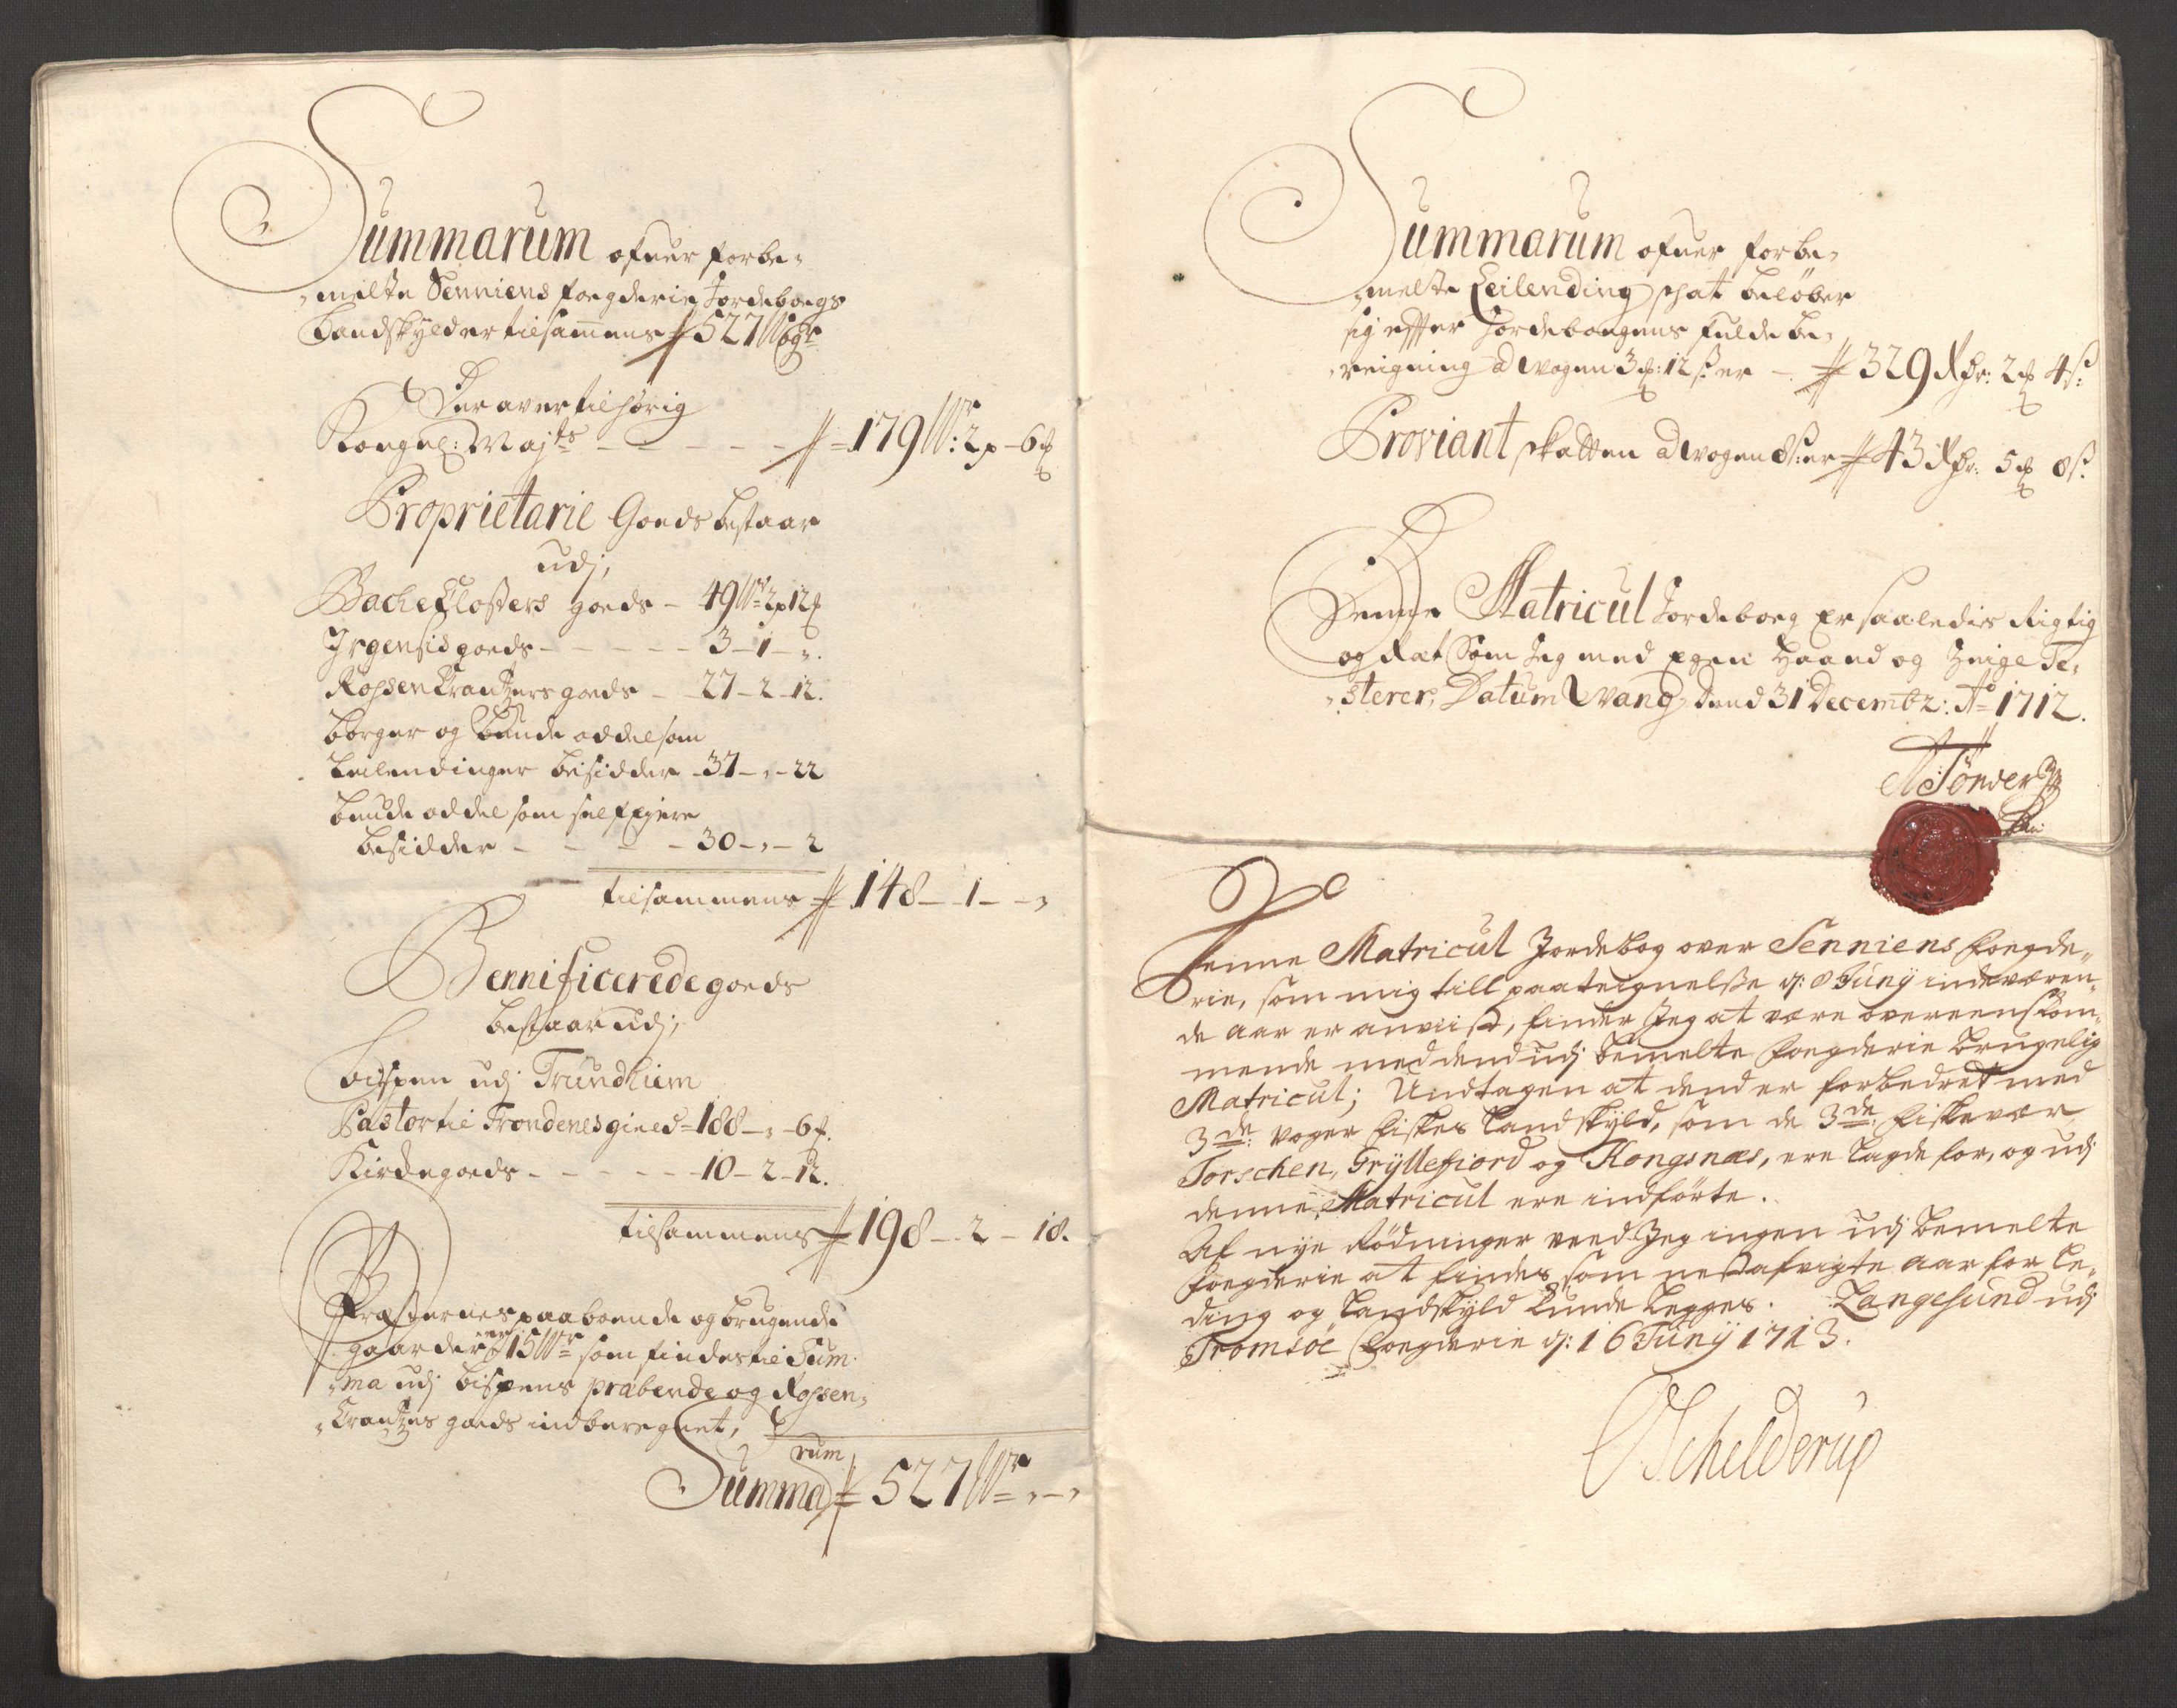 Summarum ofuer forbe-
melte Senniens fogderie Jordebogs
Landskylder tilsammens # 527 Wogr
Der aver tilhørig
Kongel: Majts - - - - # 179 Wr: 2 p - 6 #
Proprietarie Goeds bestaar
udj,
Bache Closters goeds - 49 Wr 2 p 12 #
Irgensis goeds - - - - - 3 - 1 - ,,
Rossenkrantzers goeds - - 27 - 2 - 12.
borger og Bunde oddel som
Leilendinger besidder - 37 - ,, - 22
bunde oddel som selfejere
besidder - - - - 30 - ,, - 2
tilsammens # 148 - 1 - ,,
Bennificerede goeds
bestaar udj,
bispen udj Trundhiem
Pastor til Trondenes gield - 188 - ,, - 6 #.
Kirke goeds - - - - - 10 - 2 - 12.
tilsammens # 198 - 2 - 18.
Præsternes paaboende og brugende
gaarder er 15 Wr som findes til Sum-
ma udj bispens præbende og Rossen-
Krantzes goeds indberegnet,
Summarum # 527 Wr ,, - ,,
Summarum ofuer forbe-
melte Leilending schat beløber
sig effter Jordebogens fulde be-
reigning a Wogen 3 #: 12 s: er - # 329 Rdr: 2 # 4 s:
Proviant skatten a Wogen 8 s: er # 43 Rdr: 5 # 8 s:
Denne Matricul Jordebog er saaledis Rigtig
og Ræt som Jeg med egen Haand og Zeigl Te-
sterer, Datum Wang dend 31 Decembr: Ao 1712.
A Tönder
Denne Matricul Jordebog over Senniens Fogde-
rie, som mig till paateignelse d: 8 Junÿ indeværen-
de aar er anviist, finder Jeg at være overeenskom-
mende med dend udj bemelte Fogderie brugelig
Matricul; Undtagen at dend er forbedret med
3de: voger fiskes Landskyld, som de 3de: fiskevær,
Torschen, Grÿllefiord og Kongsnæs, ere lagde for, og udj
denne Matricul ere indførte.
Af nye Rødninger veed Jeg ingen udj bemelte
Fogderie at findes, som nestafvigte aar for Le-
ding og Landskyld kunde legges. Langesund udj
Tromsøe Fogderie d: 16 Junÿ 1713.
O Schelderup